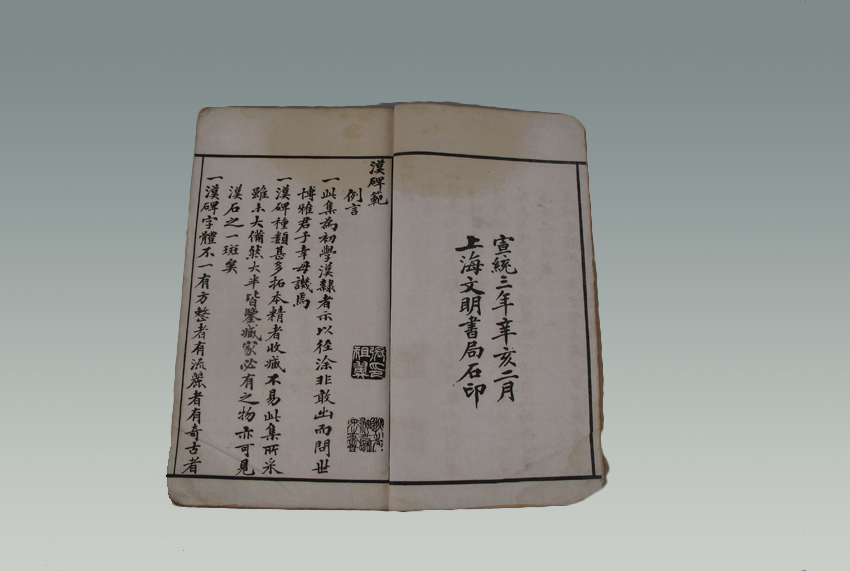 宣統三年辛亥二月
上海文明書局石印
漢碑範
例言
一此集為初學漢隸者示以徑涂非敢出而問世
博雅君子幸毋譏焉
一漢碑種類甚多拓本精者收臧不易此集所采
雖未大備然大半皆鑒臧家必有之物亦可見
漢石之一斑矣
一漢碑字體不一有方整者有流麗者有奇古者
張祖翼印